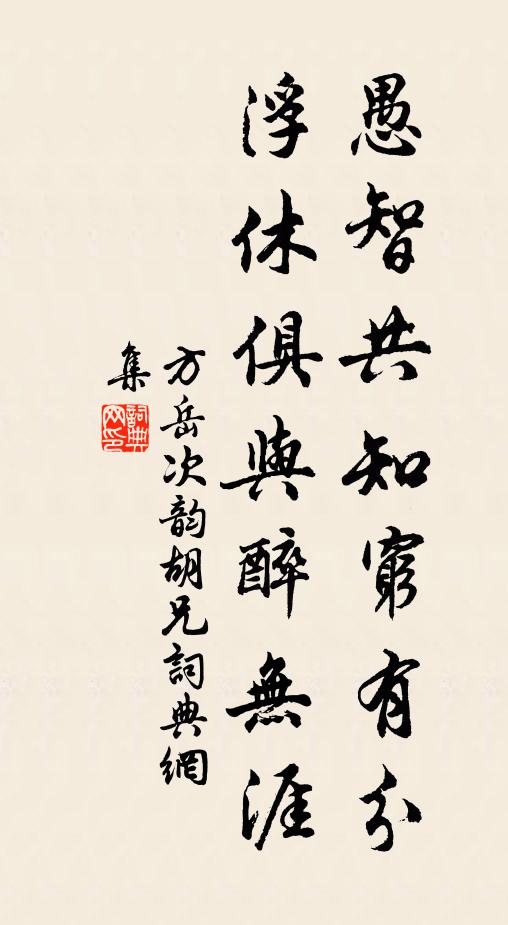 愚智共知窮有分
浮休俱與醉無涯
方岳次韵胡兄詞典網
集
詞典
网印